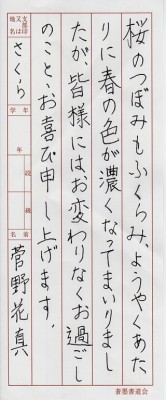 桜のつぼみもふくらみ、ようやくあた
りに春の色が濃くなってまいりまし
たが、皆様には、お変わりなくお過ごし
のこと、お喜び申し上げます。
支部印
又は
地名
さくら
学年
年
段級
名前
菅野花真
書墨書道会